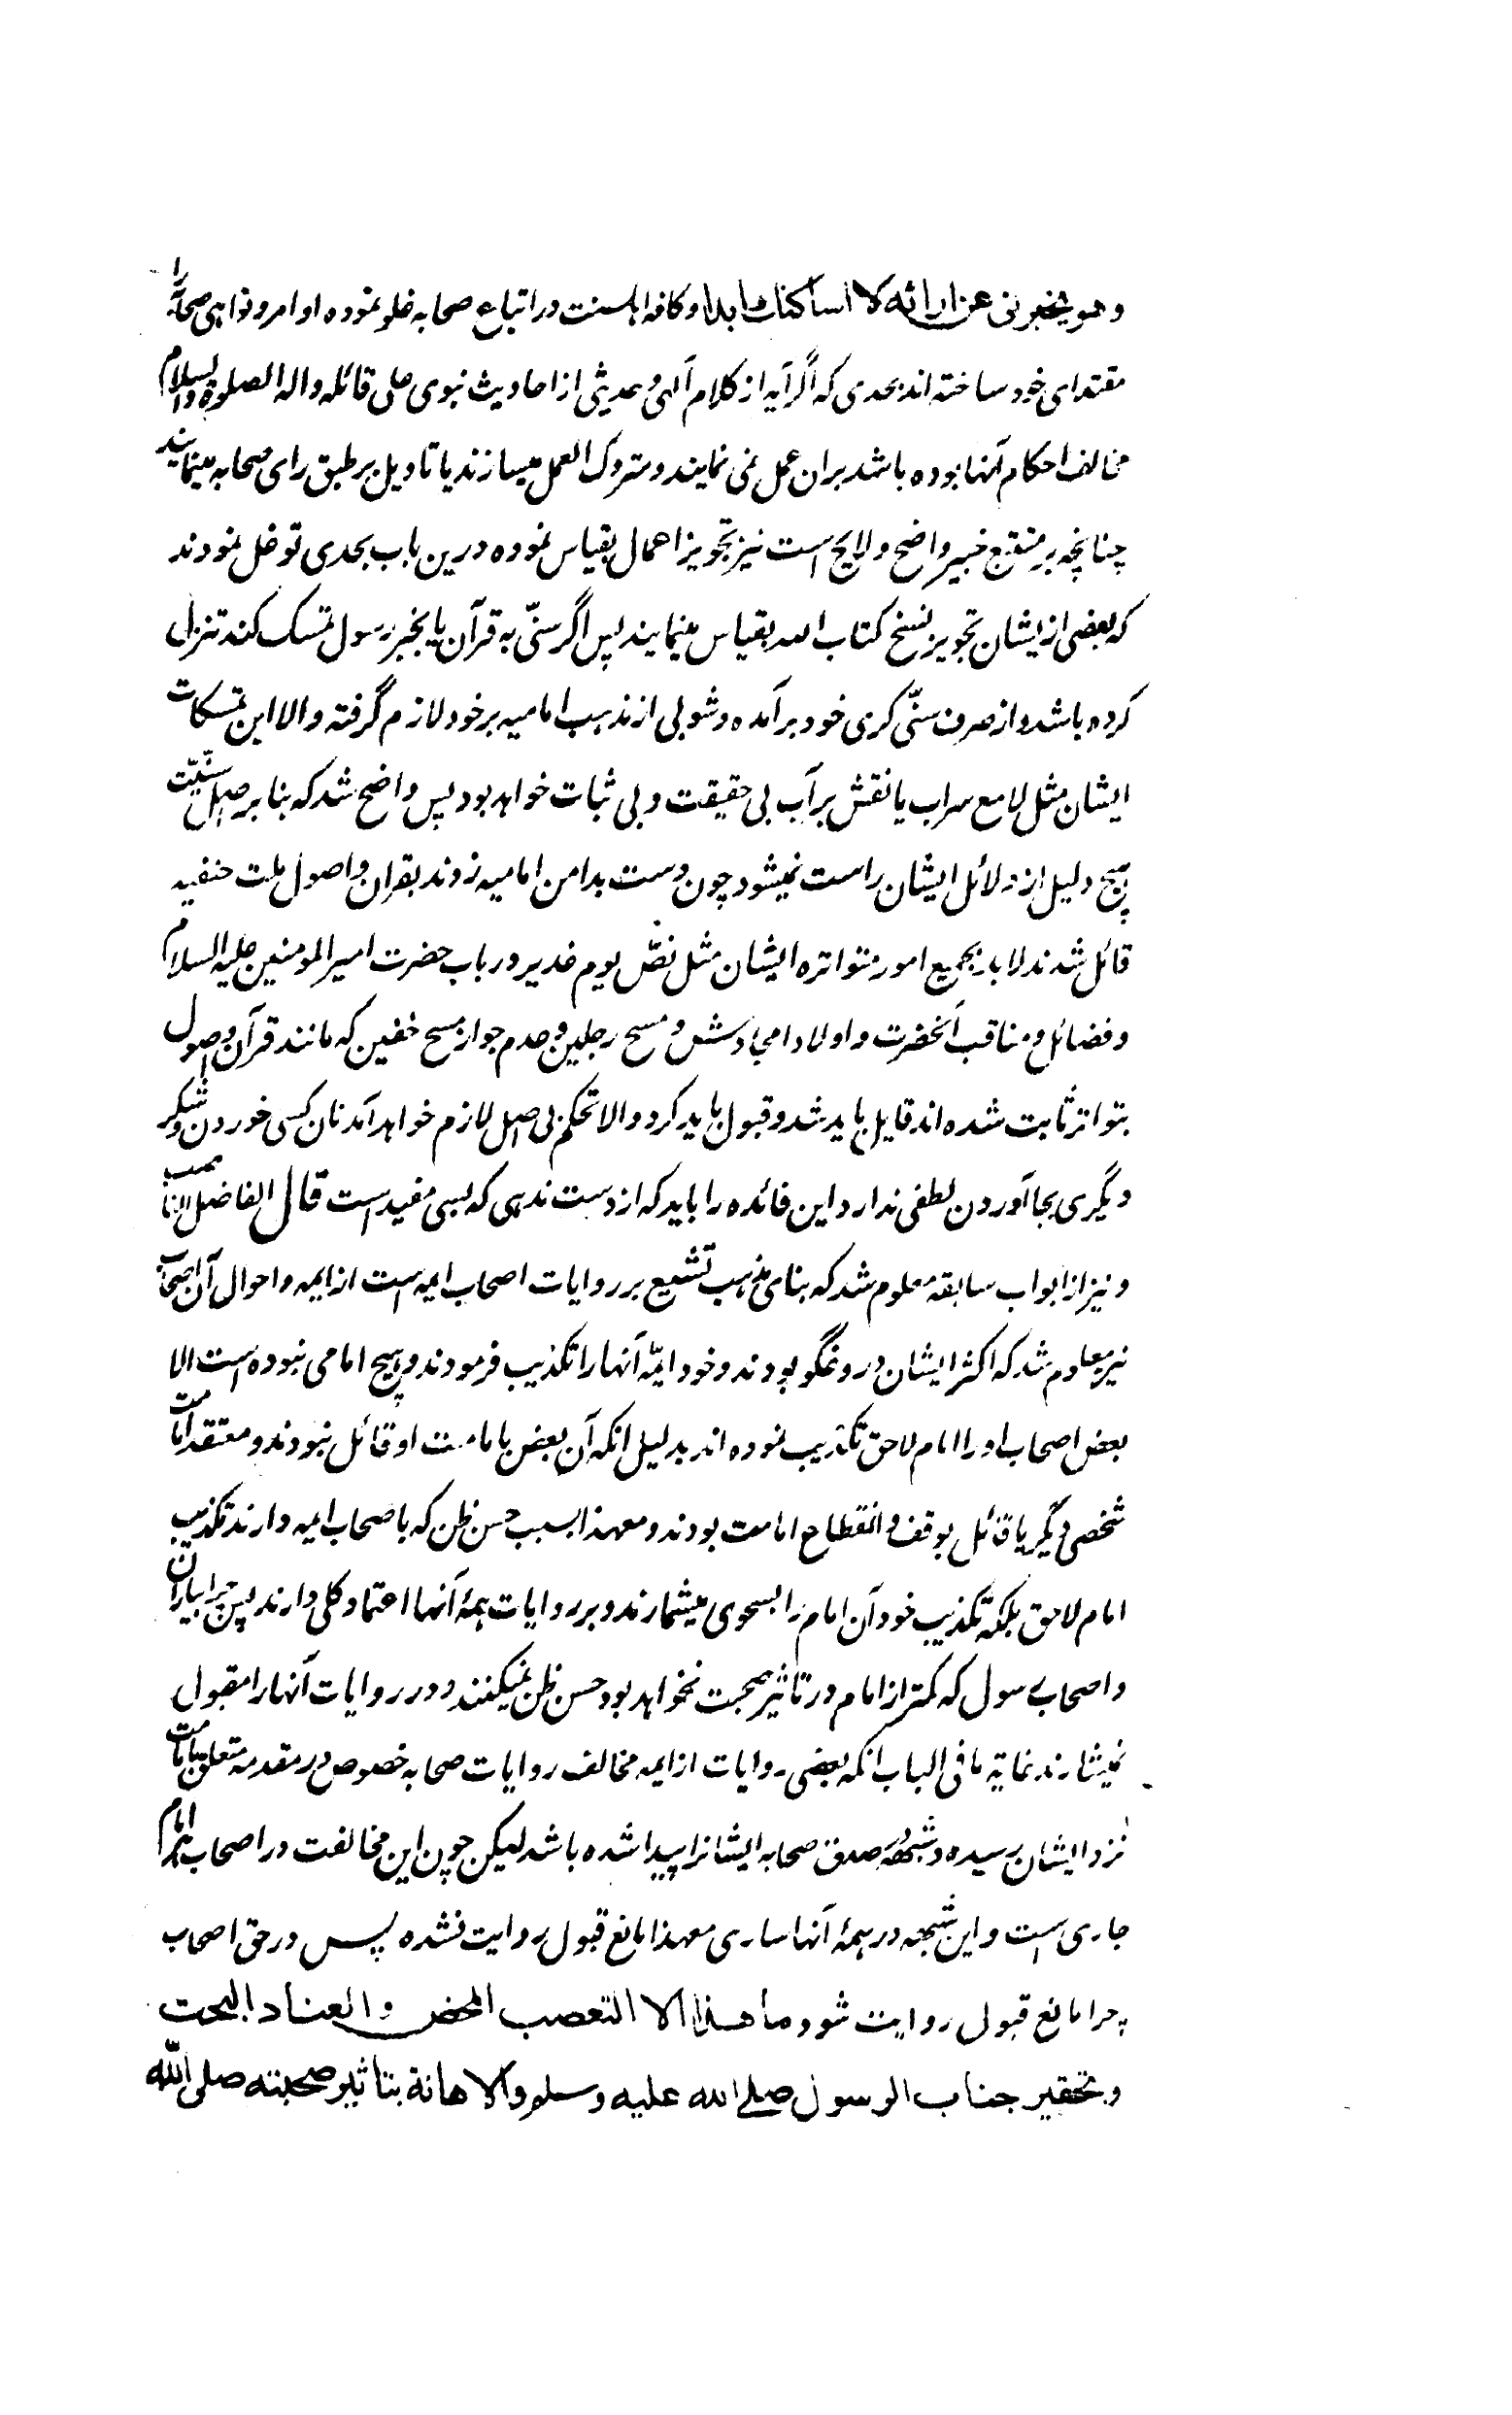 و هو يخبرنی عن ارائه لا اساكنك ابدا و کافه اهلسنت در اتباع صحابه غلو نموده اوامر و نواهی صحابه را
مقتدای خود ساخته اند بحدی که اگر آیه از کلام آلهی و حدیثی از احادیث نبوی علی قائله و اله الصلوة و السلام
مخالف احکام آنها بوده باشد بران عمل نمی نمایند و متروک العمل میسازند یا تاویل بر طبق رای صحابه مینمایند
چنانچه بر متتبع خبیر واضح و لایح است نیز تجویز اعمال بقیاس نموده درین باب بحدی توغل نمودند
که بعضی از یشان تجویز نسخ کتاب الله بقیاس مینمایند پس اگر سنّی به قرآن یا بخبر رسول تمسک کند تنزل
کرده باشد و از صرف سنّی گری خود برآمده و شولی از مذهب امامیه بر خود لازم گرفته و الا این تمسکات
ایشان مثل لامع سراب یا نقش بر آب بی حقیقت و بی ثبات خواهد بود پس واضح شد که بنا بر اصل سنّیّت
هیچ دلیل از دلائل ایشان راست نمیشود چون دست بدامن امامیه زوند بقران و اصول ملت حنفیه
قائل شدند لابد بجمیع امور متواتره ایشان مثل نصّ یوم غدیر در باب حضرت امیر المومنین علیه السلام
و فضائل و مناقب آنخضرت و اولاد امجادش و مسح رجلین و عدم جواز مسح خفین که مانند قرآن و اصول
بتواتر ثابت شده اند قایل باید شد و قبول باید کرد و الا تحکم بی اصل لازم خواهد آمد نان کسی خوردن و شکر
دیگری بجا آوردن لطفی ندارد این فائده را باید که از دست ندهی که بسی مفید است قال الفاضل الناصب
و نیز از ابواب سابقه معلوم شد که بنای مذهب تشیع بر روایات اصحاب ایمه است از ایمه و احوال آن اصحاب
نیز معلوم شد که اکثر ایشان دروغگو بودند و خود ایمّه آنها را تکذیب فرمودند و هیچ امامی نبوده است الا
بعض اصحاب او را امام لاحق تکذیب نموده اند بدلیل انکه آن بعض بامامت او قائل نبودند و معتقد امامت
شخصی دیگر یا قائل بوقف و انقطاع امامت بودند و معهذا بسبب حسن ظن که با صحاب ایمه دارند تکذیب
امام لاحق بلکه تکذیب خود آن امام را بسحوی میشمارند و بر روایات همهٔ آنها اعتماد کلی دارند پس چرا بیاران
و اصحاب رسول که کمتر از امام در تاثیر صحبت نخواهد بود حسن ظن نمیکنند و در روایات آنها را مقبول
نمیشمارند غایة ما فی الباب انکه بعضی روایات از ایمه مخالف روایات صحابه خصوص در مقدمه متعلق بامامت
نزد ایشان رسیده و شبههٔ صدق صحابه ایشانرا پیدا شده باشد لیکن چون این مخالفت در اصحاب هر امام
جاری است و این شبهه در همهٔ آنها ساری معهذا مانع قبول روایت نشده پس در حق اصحاب
چرا مانع قبول روایت شود ما هذا الا التعصب المحض و العناد البحت
و تحقیر جناب الرسول صلی الله علیه و سلم و الاهانة بتاثیر صحبته صلی اللّه